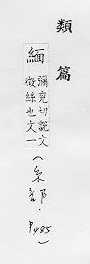 類篇
緬
彌兗切說文
微絲也文一
(糸部·P485)